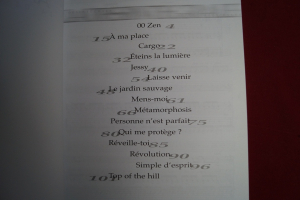 00 Zen 4
15 À ma place
Cargo 22
32 Éteins la lumière
Jessy 40
54 Laisse venir
48 Le jardin sauvage
Mens-moi 61
66 Métamorphosis
Personne n'est parfait 75
80 Qui me protège ?
Réveille-toi 85
Révolution 90
Simple d'esprit 96
101 Top of the hill